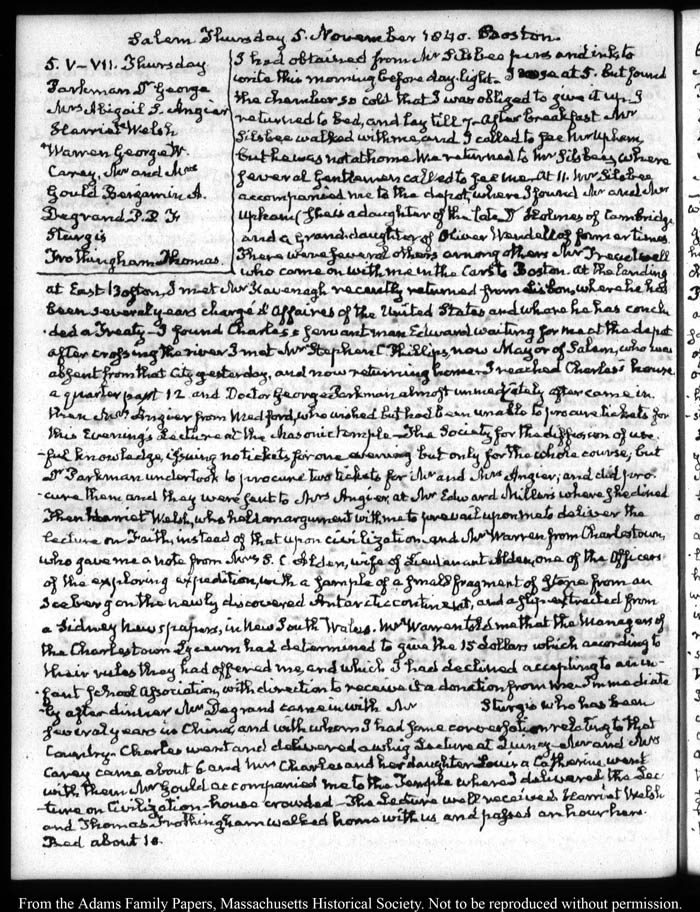 Salem Thursday 5. November 1840. Boston
5. V–VII. Thursday
Parkman Dr George
Mrs Abigail F. Angier
Harriet Welsh
Warren George W.
Carey, Mr and Mrs
Gould Benjamin A.
Degrand P. P. F.
Sturgis
Frothingham Thomas.
I had obtained from Mr Silsbee pens and ink to
write this morning before day-light. I rose at 5. but found
the chamber so cold that I was obliged to give it up. I
returned to bed, and lay till 7. After breakfast Mr
Silsbee walked with me, and I called to see Mr Upham,
but he was not at home. We returned to Mr Silsbee's, where
several Gentlemen called to see me. At 11. Mr Silsbee
accompanied me to the depot, where I found Mr and Mrs
Upham (She is a daughter of the late Dr Holmes of Cambridge
and a Grand-daughter of Oliver Wendell of former times.
There were several others among others Mr Treadwell
who came on with me in the Cars to Boston. at the landing
at East Boston, I met Mr Kavenagh recently returned from Lisbon, where he had
been several years chargé d'Affaires of the United States and where he has conclu
ded a Treaty – I found Charles's servant man Edward waiting for me at the depot
after crossing the river I met Mr Stephen C Phillips, now Mayor of Salem, who was
absent from that City yesterday, and now returning home. I reached Charles's house
a quarter past 12 and Doctor George Parkman almost immediately after came in.
then Mrs Angier from Medford, who wished but had been unable to procure tickets for
this Evening's Lecture at the Masonic temple – The Society for the diffusion of use-
-ful knowledge, issuing no tickets for one evening but only for the whole course, but
Dr Parkman undertook to procure two tickets for Mr and Mrs Angier, and did pro-
-cure them and they were sent to Mrs Angier, at Mr Edward Miller's where she dined
Then Harriet Welsh, who held an argument with me to prevail upon me to deliver the
lecture on Faith, instead of that upon civilization – and Mr Warren from Charlestown,
who gave me a note from Mrs S. C Alden, wife of Lieutenant Alden, one of the Officers
of the exploring expedition, with a sample of a small fragment of stone from an
Iceberg on the newly discovered Antarctic continent, and a slip extracted from
a Sidney newspaper, in New South Wales. Mr Warren told me that the Managers of
the Charlestown Lyceum had determined to give the 15 dollars which according to
their rules they had offered me, and which I had declined accepting to an in-
-fant school Association, with direction to receive it a donation from me. Immediate
ly after dinner Mr Degrand came in with Mr Sturgis who has been
several years in China, and with whom I had some conversation relating to that
Country. Charles went and delivered a whig Lecture at Quincy – Mr and Mrs
Carey came about 6 and Mrs Charles and her daughter Louisa Catherine went
with them. Mr Gould accompanied me to the Temple where I delivered the Lec
-ture on Civilization – house crowded – The Lecture well received. Harriet Welsh
and Thomas Frothingham walked home with us and passed an hour here.
Bed about 10.
From the Adams Family Papers, Massachusetts Historical Society. Not to be reproduced without permission.